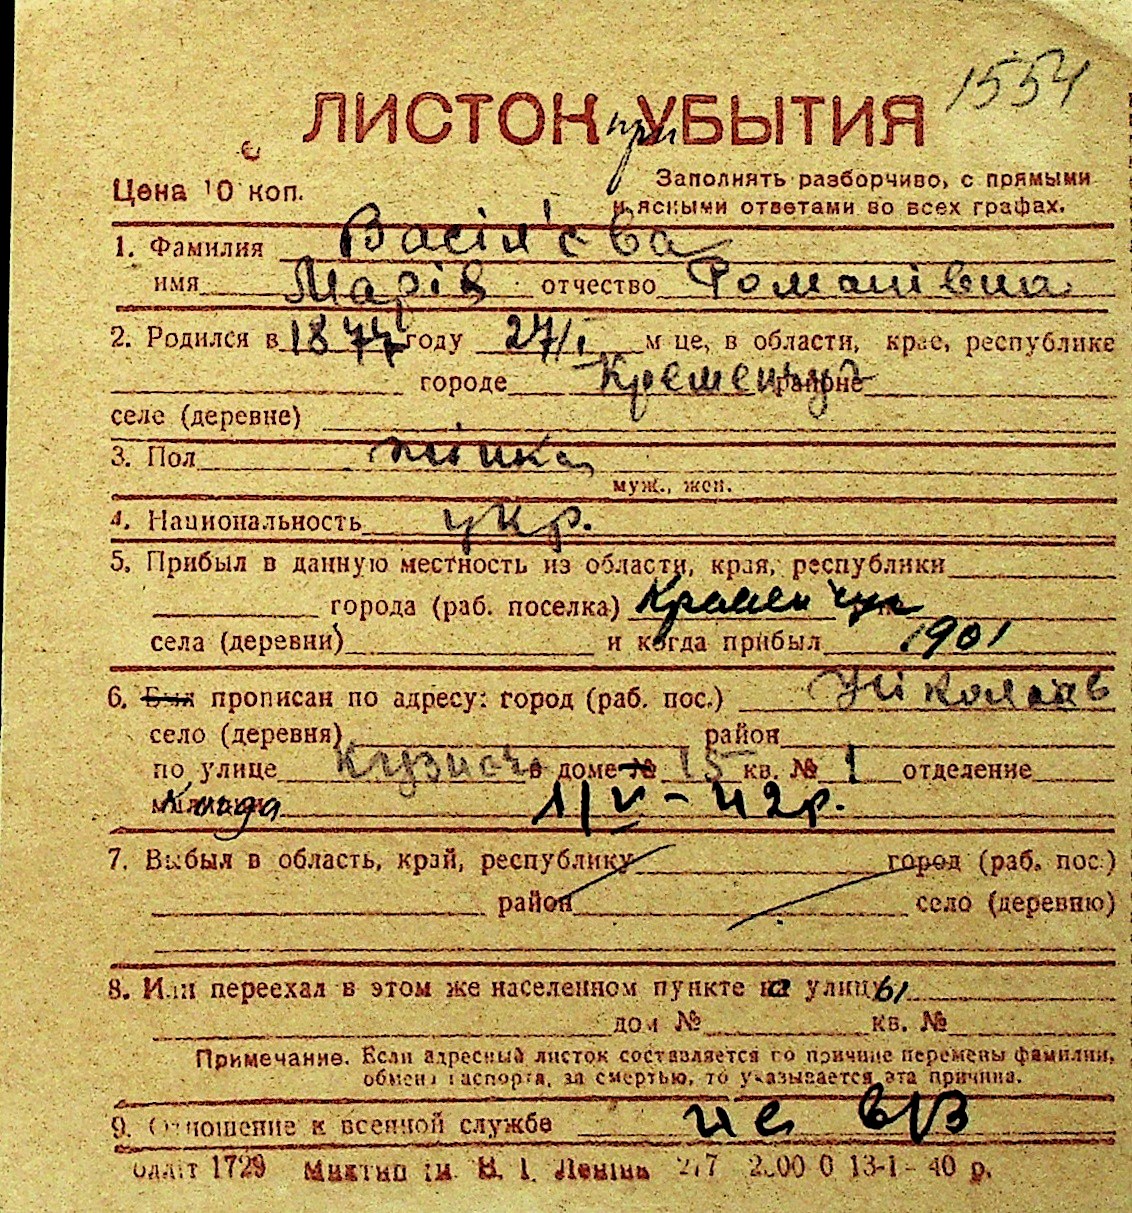 1554
ЛИСТОК при УБЫТИЯ
Цена 10 коп.
Заполнять разборчиво, с прямыми
и ясными ответами во всех графах.
1. Фамилия Васіл'єва
имя Марія отчество Романівна
2. Родился в 1877 году 27/I м-це, в области, крае, республике
городе Кременчуг районе
селе (деревне)
3. Пол жінка
муж., жен.
4. Национальность укр.
5. Прибыл в данную местность из области, края, республики
города (раб. поселка) Кременчук
села (деревни) и когда прибыл 1901
6. Был прописан по адресу: город (раб. пос.) Николаїв
село (деревня) район
по улице в доме № 15 кв. № 1 отделение
милиции 1/V-42р.
7. Выбыл в область, край, республику город (раб. пос.)
район село (деревню)
8. Или переехал в этом же населенном пункте на улицу
дом № кв. №
Примечание. Если адресный листок составляется по причине перемены фамилии,
обмена паспорта, за смертью, то указывается эта причина.
9. Отношение к военной службе не в/з
1729 Миктип ім. В. І. Леніна 13-1-40 р.